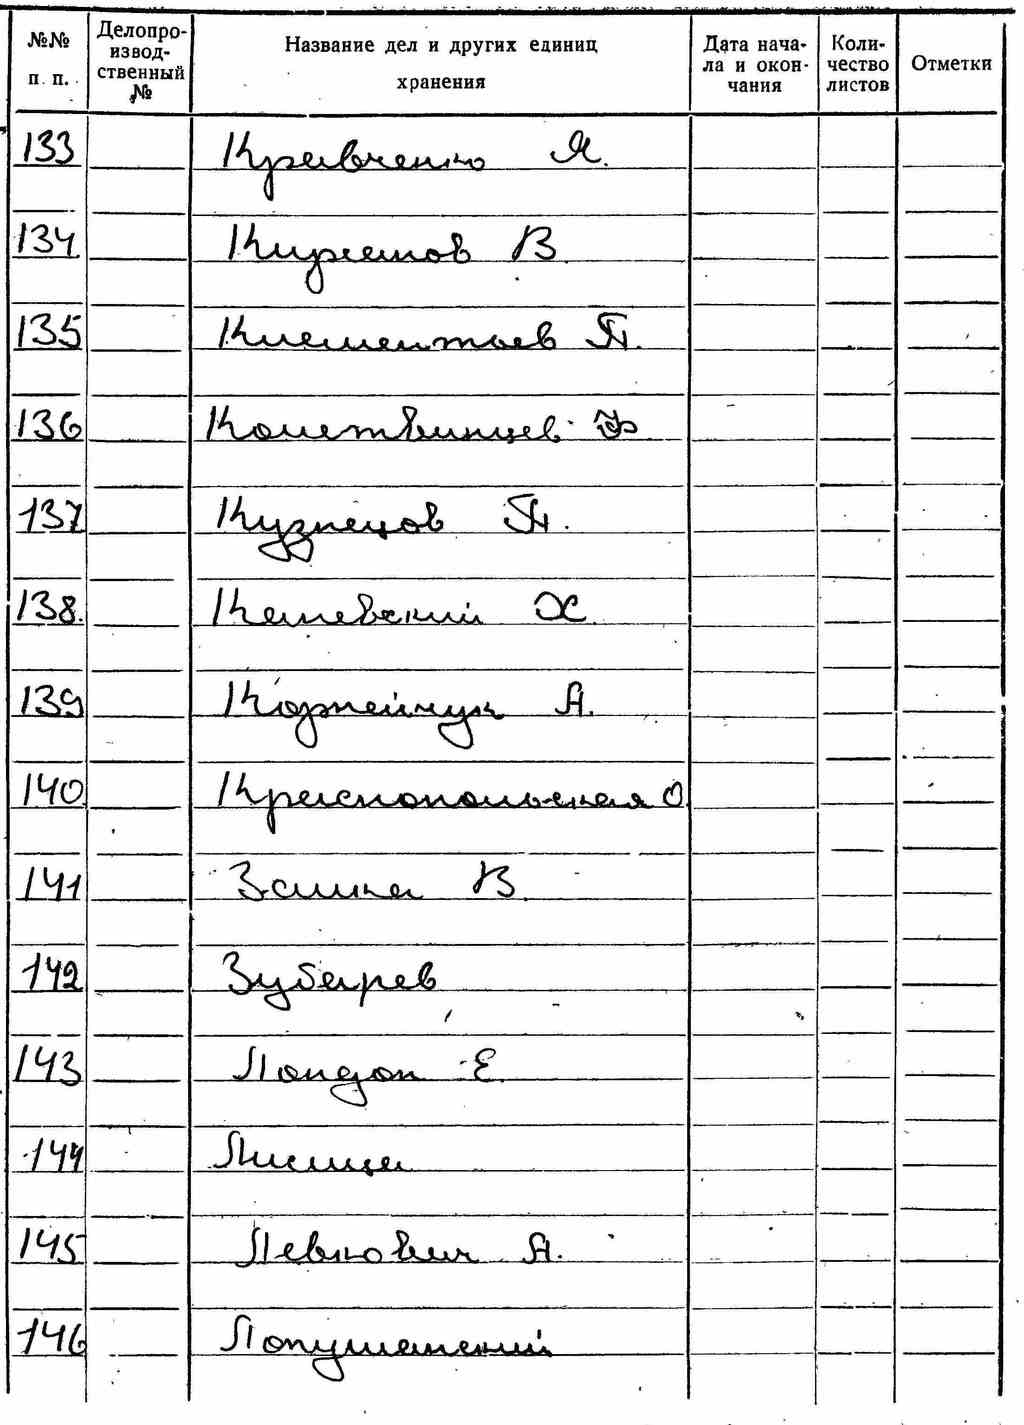 №№ п. п.
Делопроизводственный №
Название дел и других единиц хранения
Дата начала и окончания
Количество листов
Отметки
133 Кравченко Я.
134 В
135 Клементьев П.
136
137 Кузнецов П.
138. Х.
139 Корнейчук А.
140 Краснопольская О
141 Заика В.
142 Зубарев
143 Лондон Е.
144 Лисица
145 Левкович А.
146 Лопушанский